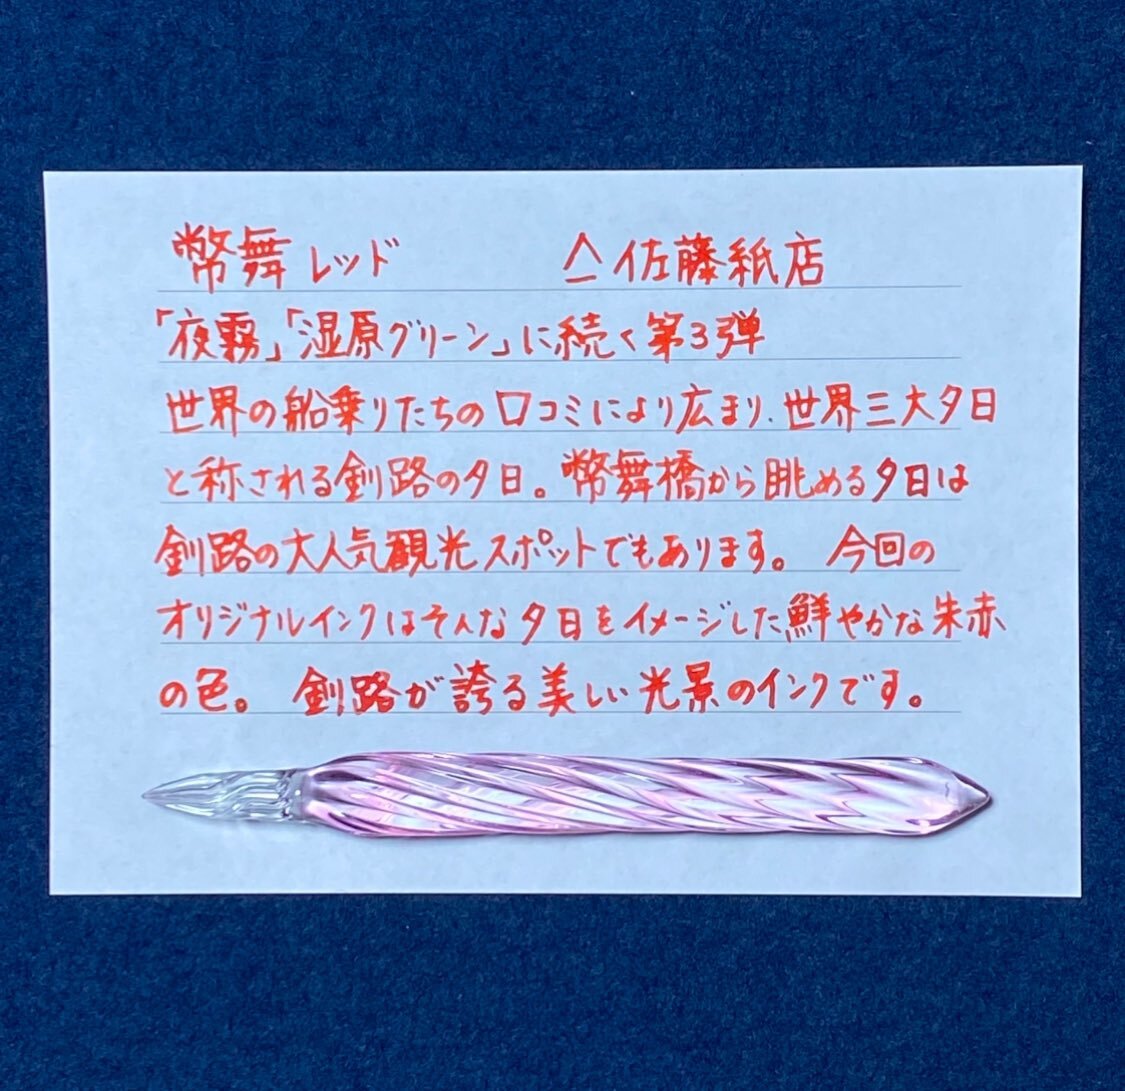 幣舞レッド　　　　△佐藤紙店
「夜霧」「湿原グリーン」に続く第3弾
世界の船乗りたちの口コミにより広まり、世界三大夕日
と称される釧路の夕日。幣舞橋から眺める夕日は
釧路の大人気観光スポットでもあります。　今回の
オリジナルインクはそんな夕日をイメージした鮮やかな朱赤
の色。　釧路が誇る美しい光景のインクです。